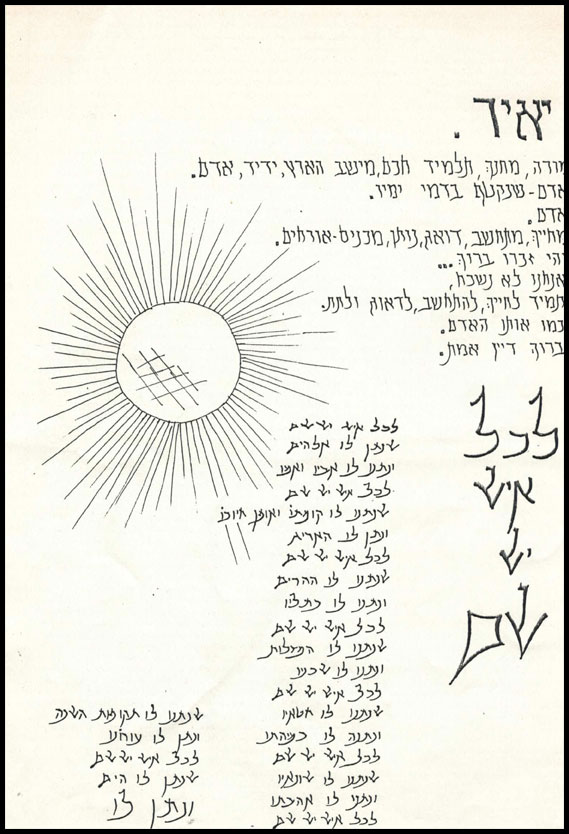 יאיר.
מורה, מחנך, תלמיד חכם, מישב הארץ, ידיד, אדם.
אדם-שנקטם בדמי ימיו.
אדם.
מחייך, מתחשב, דואג, נותן, מכניס-אורחים.
יהי זכרו ברוך...
אנחנו לא נשכח,
תמיד לחייך, להתחשב, לדאוג ולתת.
כמו אותו האדם.
ברוך דיין אמת.
לכל
איש
יש
שם
לכל איש יש שם
שנתן לו אלהים
ונתנו לו אביו ואמו
לכל איש יש שם
שנתנו לו קומתו ואופן חיוכו
ונתן לו האריג
לכל איש יש שם
שנתנו לו ההרים
ונתנו לו כתליו
לכל איש יש שם
שנתנו לו המזלות
ונתנו לו שכניו
לכל איש יש שם
שנתנו לו חטאיו
ונתנה לו כמיהתו
לכל איש יש שם
שנתנו לו שונאיו
ונתנו לו אהבתו
לכל איש יש שם
שנתנו לו תקופות השנה
ונתן לו עורונו
לכל איש יש שם
שנתן לו הים
ונתן לו